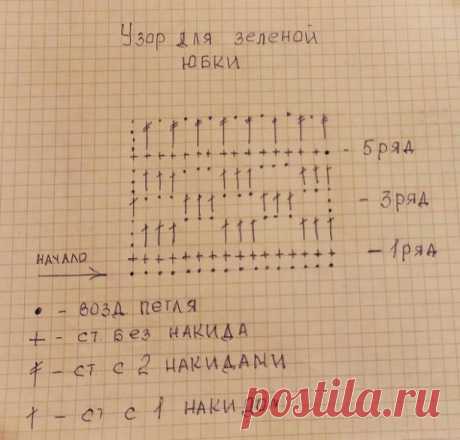 Узор для зеленой
юбки
- 5 ряд
- 3 ряд
- 1 ряд
НАЧАЛО
• - возд петля
+ - ст без накида
- ст с 2 накидами
- ст с 1 накидом
postila.ru